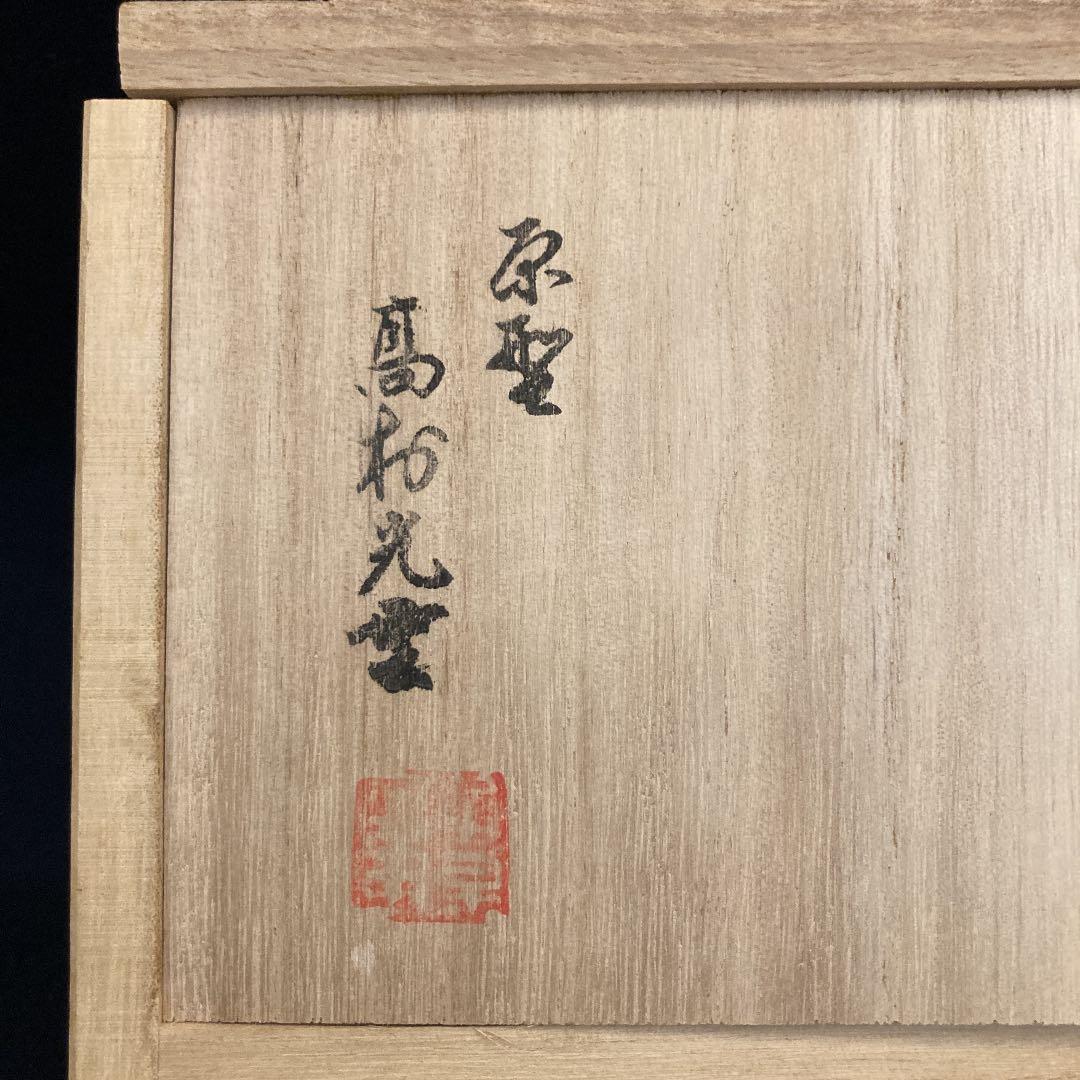 原型
高村光雲